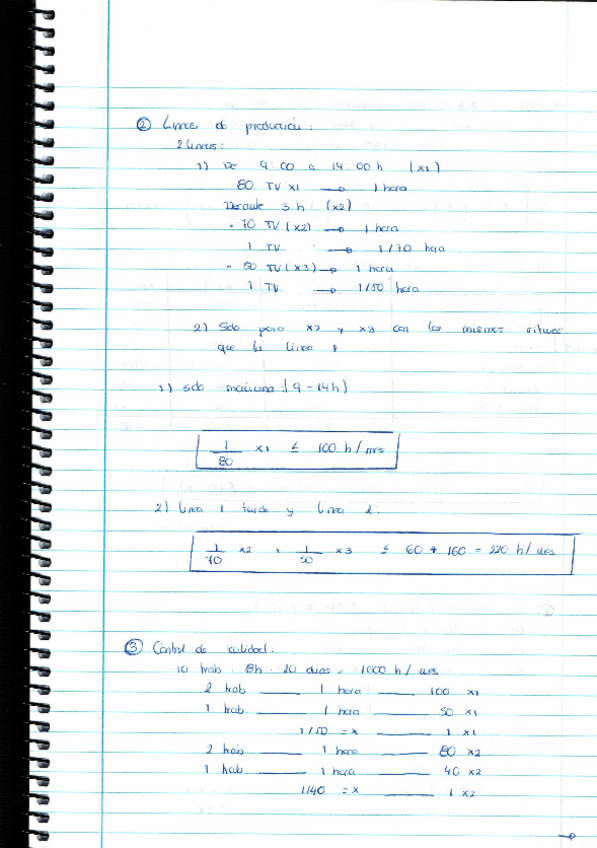 ② Lineas de producción:
2 Lineas:
1) De 9:00 a 14:00 h (x1)
80 TV x1 → 1 hora
Durante 3 h (x2)
• 70 TV (x2) → 1 hora
1 TV → 1/70 hora
• 50 TV (x3) → 1 hora
1 TV → 1/50 hora
2) Solo para x2 y x3 con los mismos ritmos
que la linea 1
1) solo mañana: (9-14h)
1/80 x1 ≤ 100 h/mes
2) Linea 1 tarde y linea 2:
1/70 x2 + 1/50 x3 ≤ 60 + 160 = 220 h/mes
③ Control de calidad:
10 trab · 8h · 20 dias = 1600 h/mes
2 trab —— 1 hora —— 100 x1
1 trab —— 1 hora —— 50 x1
1/50 = x —— 1 x1
2 trab —— 1 hora —— 80 x2
1 trab —— 1 hora —— 40 x2
1/40 = x —— 1 x2
→